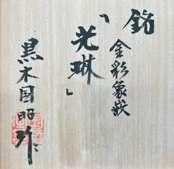 銘
金彩象嵌
「光琳」
黒木国昭作